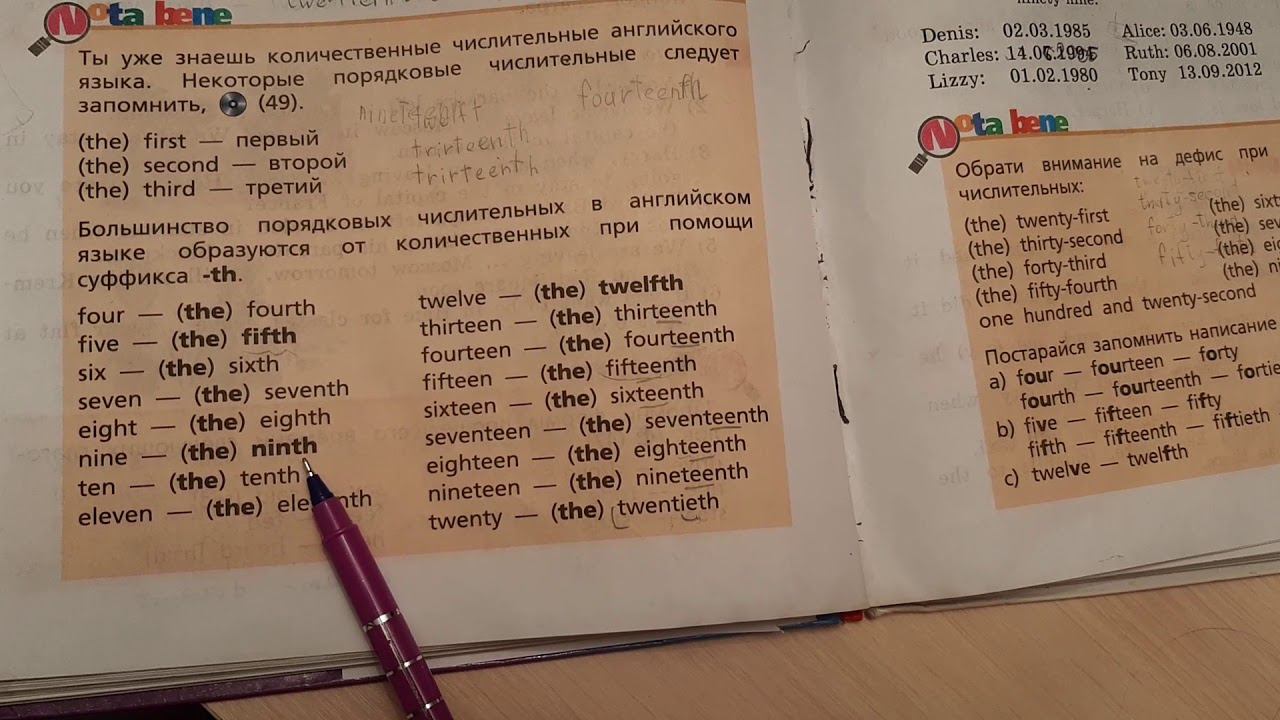 Nota bene
Ты уже знаешь количественные числительные английского
языка. Некоторые порядковые числительные следует
запомнить, (49).
fourteenth
trirteenth
trirteenth
(the) first — первый
(the) second — второй
(the) third — третий
Большинство порядковых числительных в английском
языке образуются от количественных при помощи
суффикса -th.
four — (the) fourth
five — (the) fifth
six — (the) sixth
seven — (the) seventh
eight — (the) eighth
nine — (the) ninth
ten — (the) tenth
eleven — (the)
twelve — (the) twelfth
thirteen — (the) thirteenth
fourteen — (the) fourteenth
fifteen — (the) fifteenth
sixteen — (the) sixteenth
seventeen — (the) seventeenth
eighteen — (the) eighteenth
nineteen — (the) nineteenth
twenty — (the) twentieth
Denis: 02.03.1985 Alice: 03.06.1948
Charles: Ruth: 06.08.2001
Lizzy: 01.02.1980 Tony 13.09.2012
Nota bene
Обрати внимание на дефис при
числительных:
(the) twenty-first (the)
(the) thirty-second (the)
(the) forty-third (the)
(the) fifty-fourth (the)
one hundred and twenty-second
Постарайся запомнить написание
a) four — fourteen — forty
fourth — fourteenth —
b) five — fifteen — fifty
fifth — fifteenth — fiftieth
c) twelve — twelfth